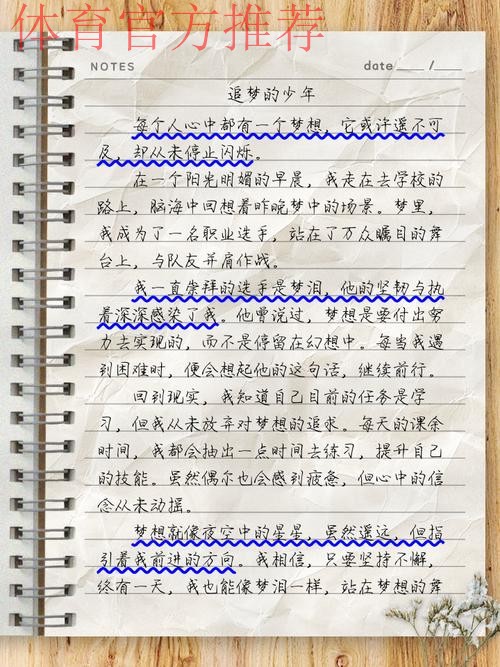 体育官方推荐
NOTES
date ___ / ___
追梦的少年
每个人心中都有一个梦想，它或许遥不可
及，却从未停止闪烁。
在一个阳光明媚的早晨，我走在去学校的
路上，脑海中回想着昨晚梦中的场景。梦里，
我成为了一名职业选手，站在了万众瞩目的舞
台上，与队友并肩作战。
我一直崇拜的选手是梦泪，他的坚韧与执
着深深感染了我。他曾说过，梦想是要付出努
力去实现的，而不是停留在幻想中。每当我遇
到困难时，便会想起他的这句话，继续前行。
回到现实，我知道自己目前的任务是学
习，但我从未放弃对梦想的追求。每天的课余
时间，我都会抽出一点时间去练习，提升自己
的技能。虽然偶尔也会感到疲惫，但心中的信
念从未动摇。
梦想就像夜空中的星星，虽然遥远，但指
引着我前进的方向。我相信，只要坚持不懈，
终有一天，我也能像梦泪一样，站在梦想的舞